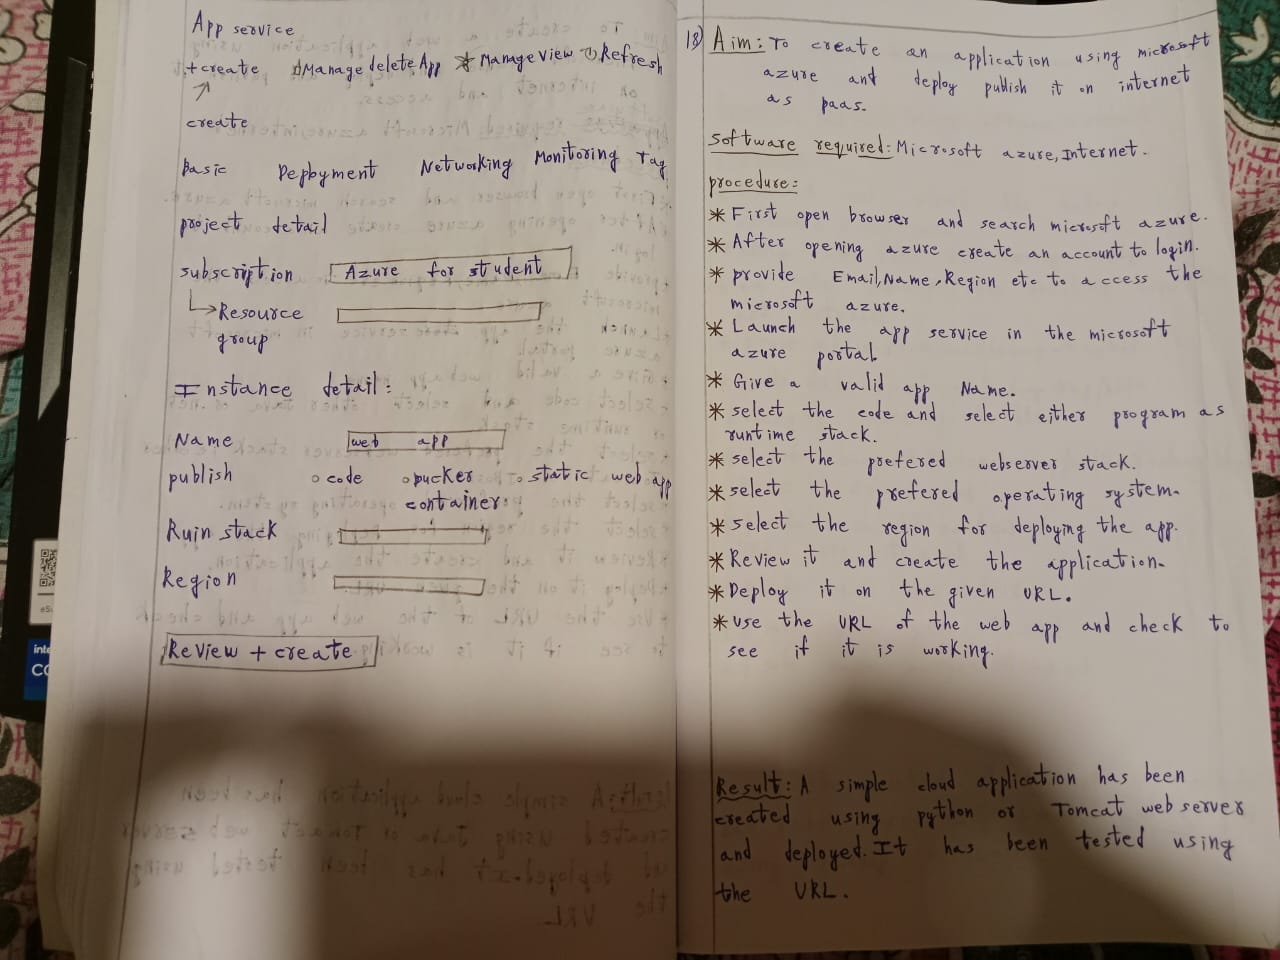 App service
+create Manage delete App Manage view Refresh
create
Basic Deployment Networking Monitoring Tag
project detail
subscription Azure for student
Resource
group
Instance detail:
Name web app
publish code Ducker static web app
container
Ruin stack
Region
Review + create
18) Aim: To create an application using microsoft
azure and deploy publish it on internet
as paas.
Software required: Microsoft azure, Internet.
procedure:
* First open browser and search microsoft azure.
* After opening azure create an account to login.
* provide Email, Name, Region etc to access the
microsoft azure.
* Launch the app service in the microsoft
azure portal
* Give a valid app Name.
* select the code and select either program as
runtime stack.
* select the prefered webserver stack.
* select the prefered operating system.
* select the region for deploying the app.
* Review it and create the application.
* Deploy it on the given URL.
* use the URL of the web app and check to
see if it is working.
Result: A simple cloud application has been
created using python or Tomcat web server
and deployed. It has been tested using
the URL.